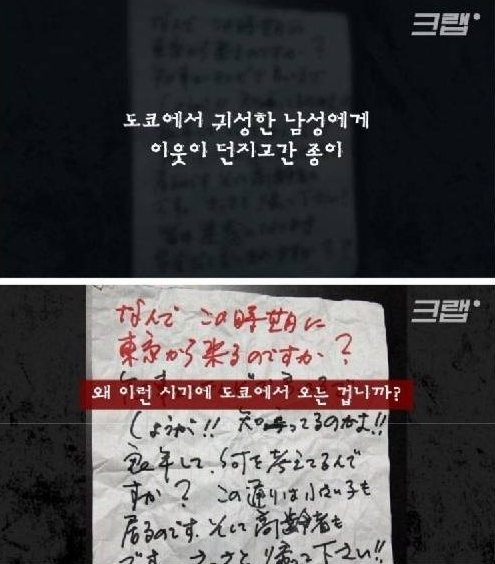 크랩
도쿄에서 귀성한 남성에게
이웃이 던지고간 종이
크랩
なんで この時期に
東京から来るのですか？
왜 이런 시기에 도쿄에서 오는 겁니까?
しょうが!!
して、何を考えてるんで
すか？ この通りは小さい子も
居るのです。そして高齢者も
です。さっさと帰って下さい!!